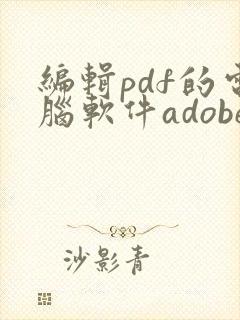 編輯pdf的電
腦軟件adobe
沙影青